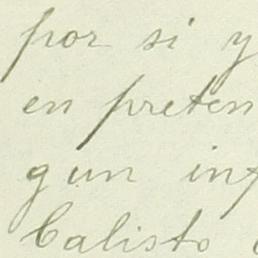 por si y
en preten
gun inf
Calisto